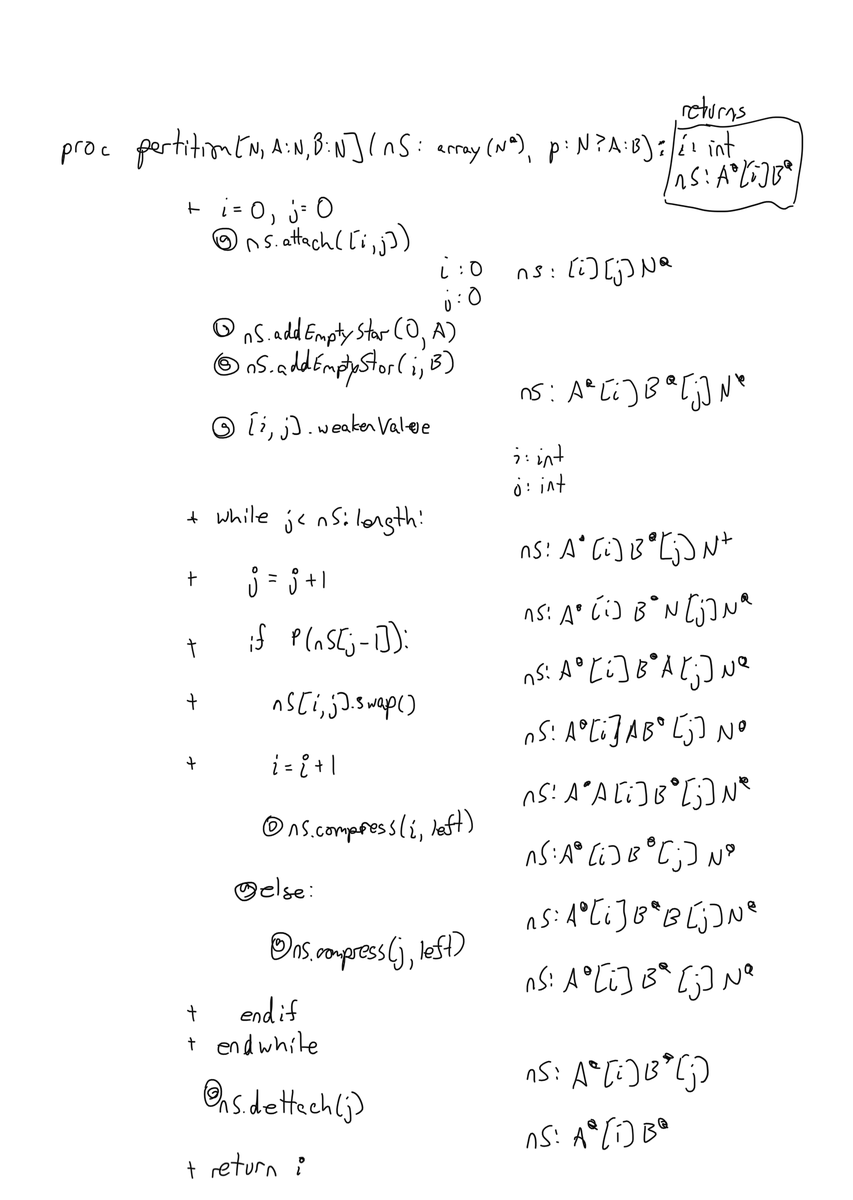 returns
proc partition[N, A:N, B:N](nS: array(N*), p: N?A:B): i: int
nS: A*[i]B*
+ i=0, j=0
@ nS.attach([i,j])
i:0 nS: [i][j]N*
j:0
@ nS.addEmptyStar(0, A)
@ nS.addEmptyStar(i, B)
nS: A*[i]B*[j]N*
@ [i,j].weakenValue
i: int
j: int
+ while j< nS.length:
nS: A*[i]B*[j]N+
+ j = j+1
nS: A*[i]B*N[j]N*
+ if P(nS[j-1]):
nS: A*[i]B*A[j]N*
+ nS[i,j].swap()
nS: A*[i]AB*[j]N*
+ i=i+1
nS: A*A[i]B*[j]N*
@ nS.compress(i, left)
nS: A*[i]B*[j]N*
@ else:
nS: A*[i]B*B[j]N*
@ nS.compress(j, left)
nS: A*[i]B*[j]N*
+ endif
+ endwhile
nS: A*[i]B*[j]
@ nS.dettach(j)
nS: A*[i]B*
+ return i